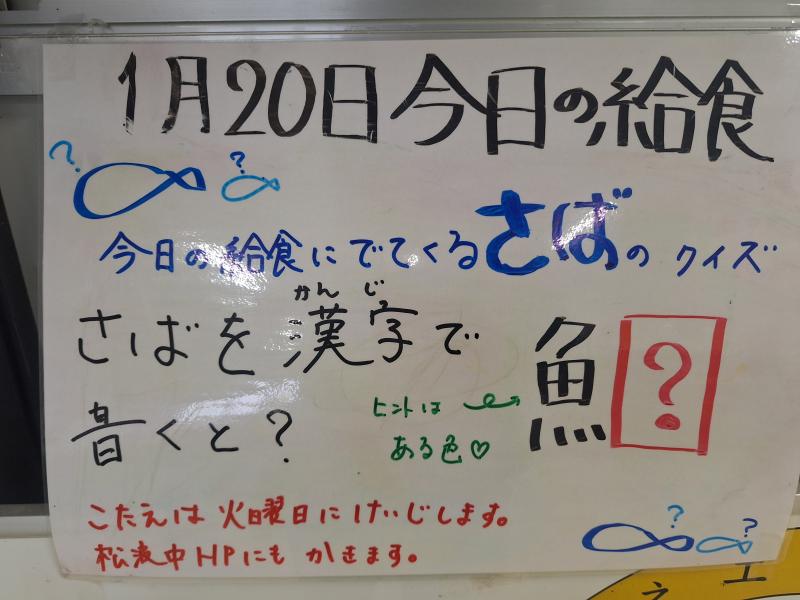 1月20日今日の給食
? ?
今日の給食にでてくるさばの クイズ
かんじ
さばを漢字で
書くと?
魚?
ヒントは
ある色♡
こたえは 火曜日にけいじします。
松波中HPにも かきます。
? ?
ネ エ